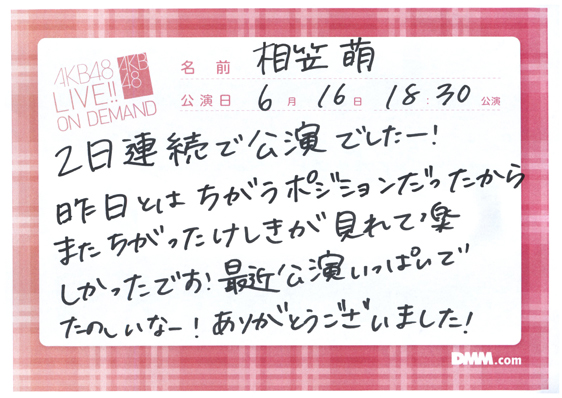 AKB48
LIVE!!
ON DEMAND
AKB
48
名前 相笠萌
公演日 6月16日 18:30公演
2日連続で公演でしたー!
昨日とはちがうポジションだったから
またちがったけしきが見れて楽
しかったです!最近公演いっぱいで
たのしいなー!ありがとうございました!
DMM.com